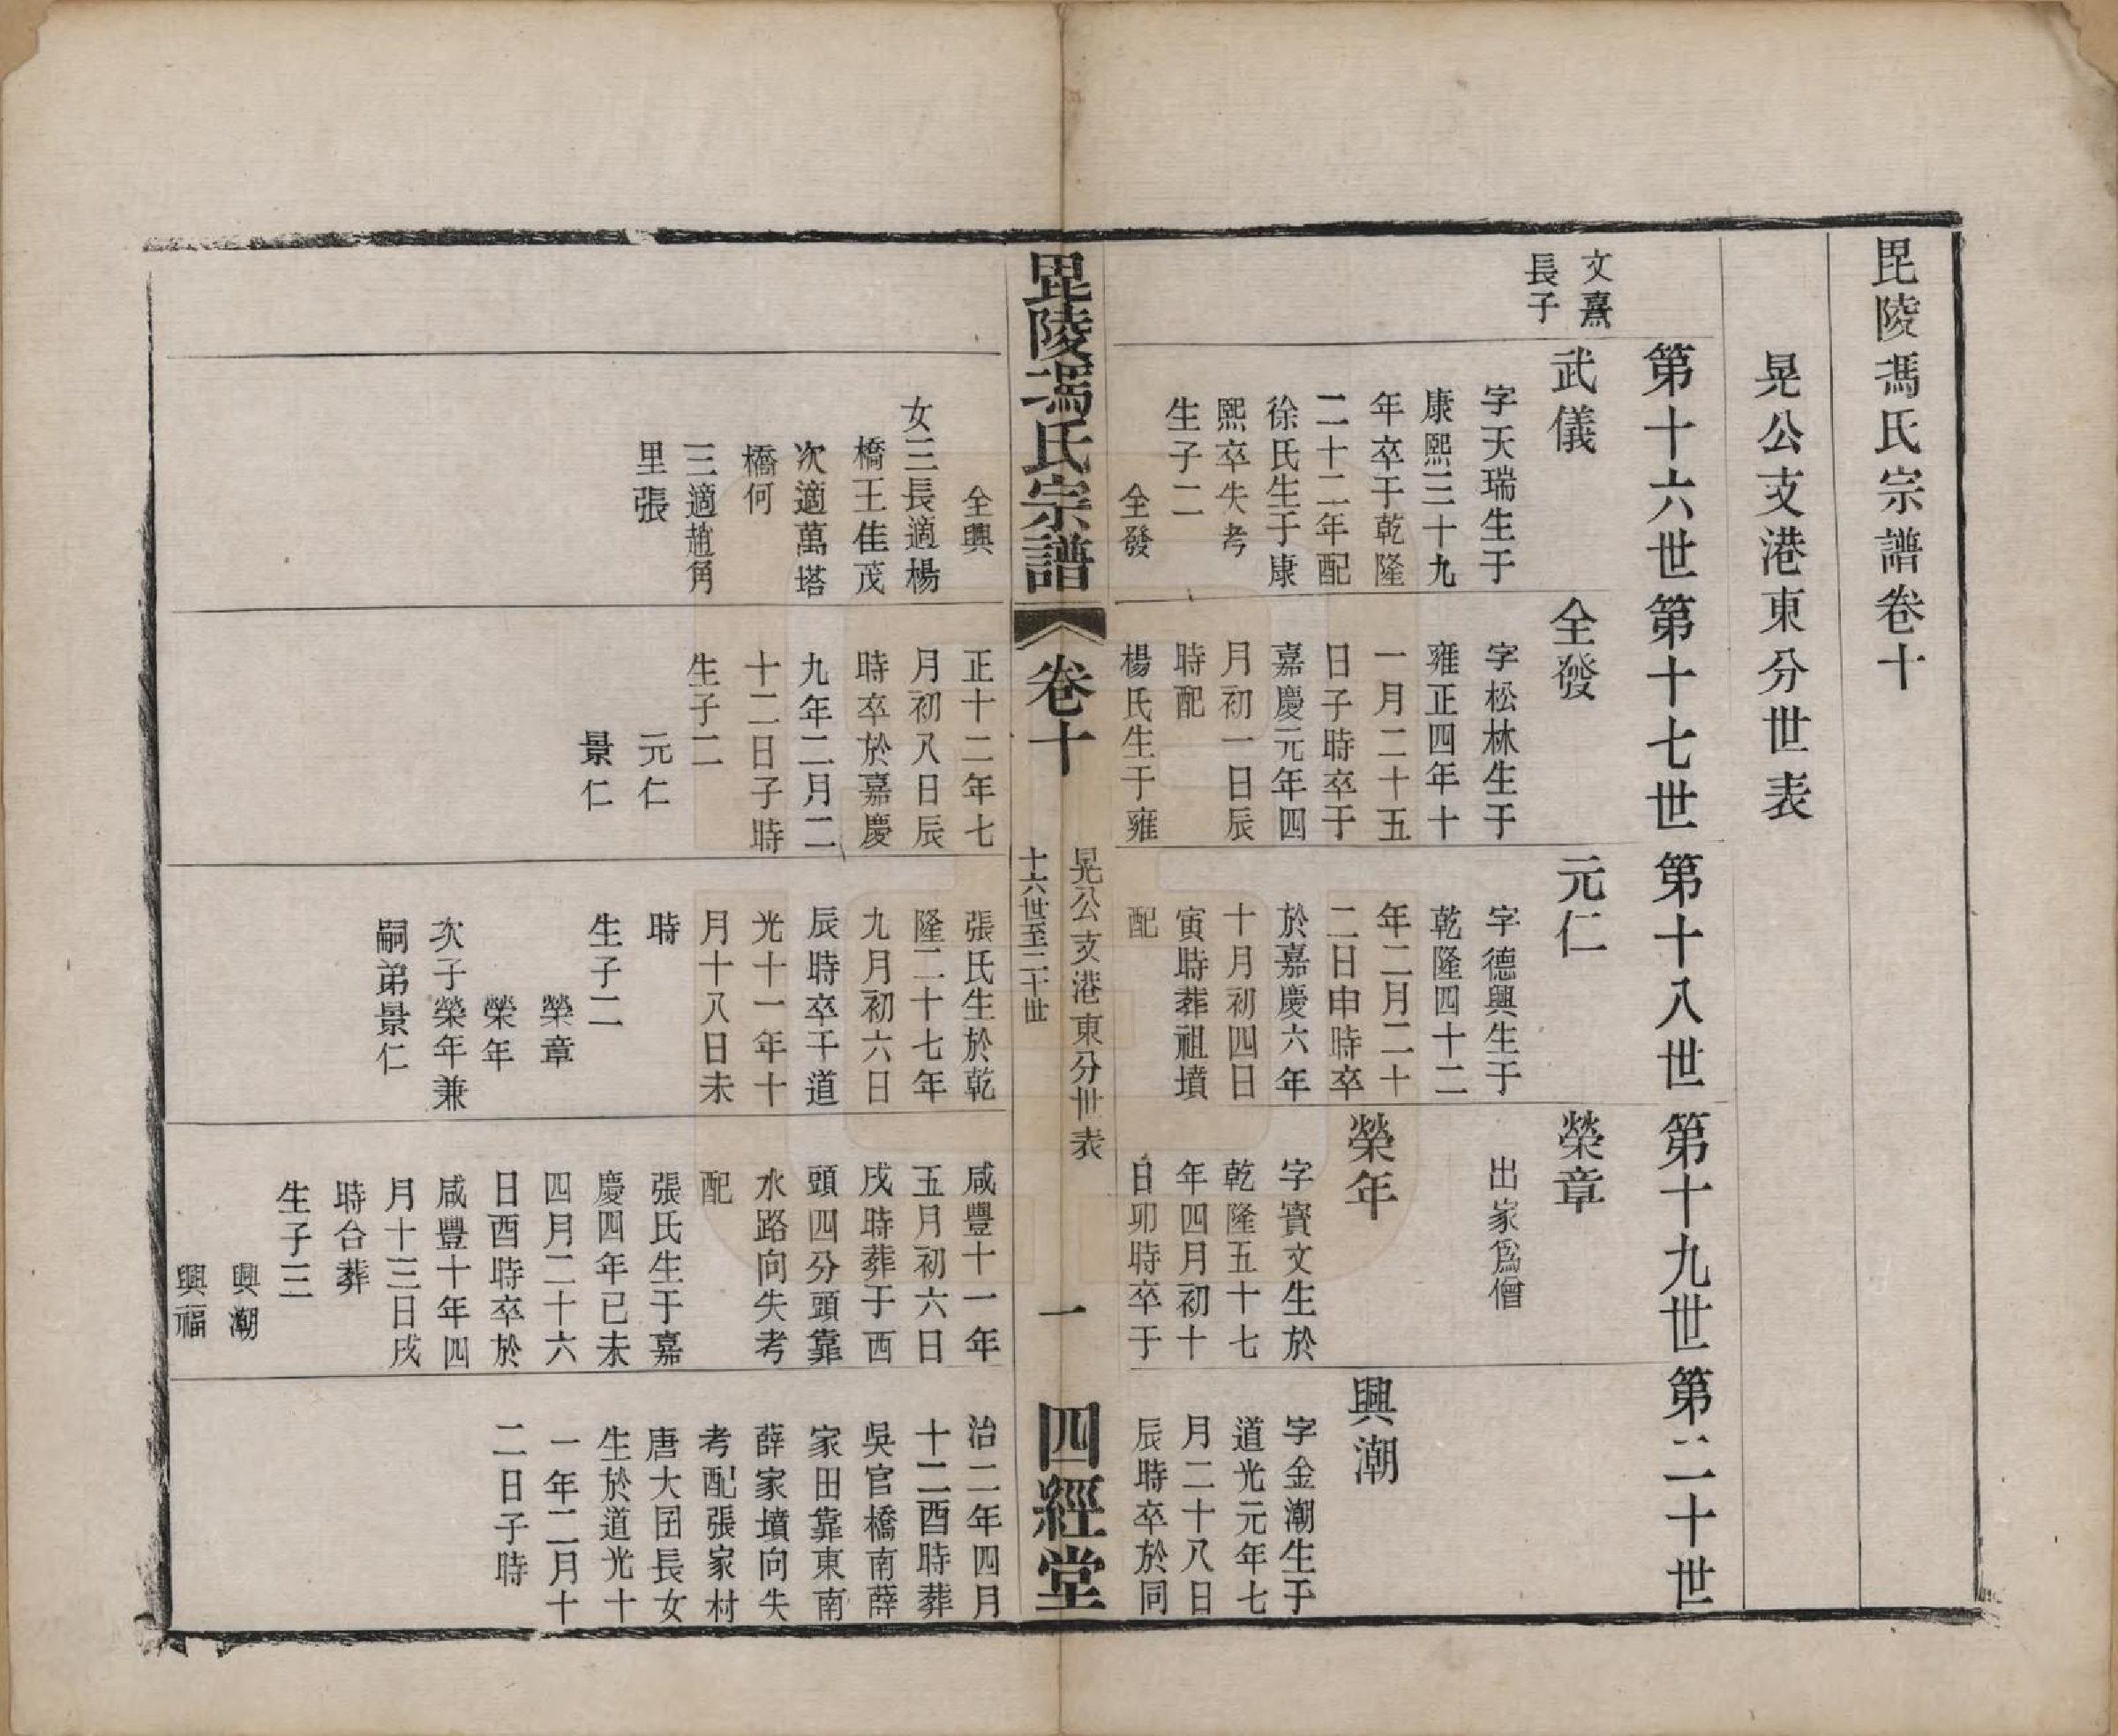 毘陵馮氏宗譜卷十
晃公支港東分世表
第十六世
第十七世
第十八世
第十九世
第二十世
文熹
長子
武儀
字天瑞生于
康熙三十九
年卒于乾隆
二十二年配
徐氏生于康
熙卒失考
生子二
全發
全興
女三長適楊
橋王佳茂
次適萬塔
橋何
三適趙角
里張
全發
字松林生于
雍正四年十
一月二十五
日子時卒于
嘉慶元年四
月初一日辰
時配
楊氏生于雍
正十二年七
月初八日辰
時卒於嘉慶
九年二月二
十二日子時
生子二
元仁
景仁
元仁
字德興生于
乾隆四十二
年二月二十
二日申時卒
於嘉慶六年
十月初四日
寅時葬祖墳
配
張氏生於乾
隆二十七年
九月初六日
辰時卒于道
光十一年十
月十八日未
時
生子二
榮章
榮年
次子榮年兼
嗣弟景仁
榮章
出家爲僧
榮年
字寶文生於
乾隆五十七
年四月初十
日卯時卒于
咸豐十一年
五月初六日
戌時葬于西
頭四分頭靠
水路向失考
配
張氏生于嘉
慶四年己未
四月二十六
日酉時卒於
咸豐十年四
月十三日戌
時合葬
生子三
興潮
興福
興潮
字金潮生于
道光元年七
月二十八日
辰時卒於同
治二年四月
十二酉時葬
吳官橋南薛
家田靠東南
薛家墳向失
考配張家村
唐大囝長女
生於道光十
一年二月十
二日子時
毘陵馮氏宗譜
卷十
晃公支港東分世表
十六世至二十世
一
四經堂